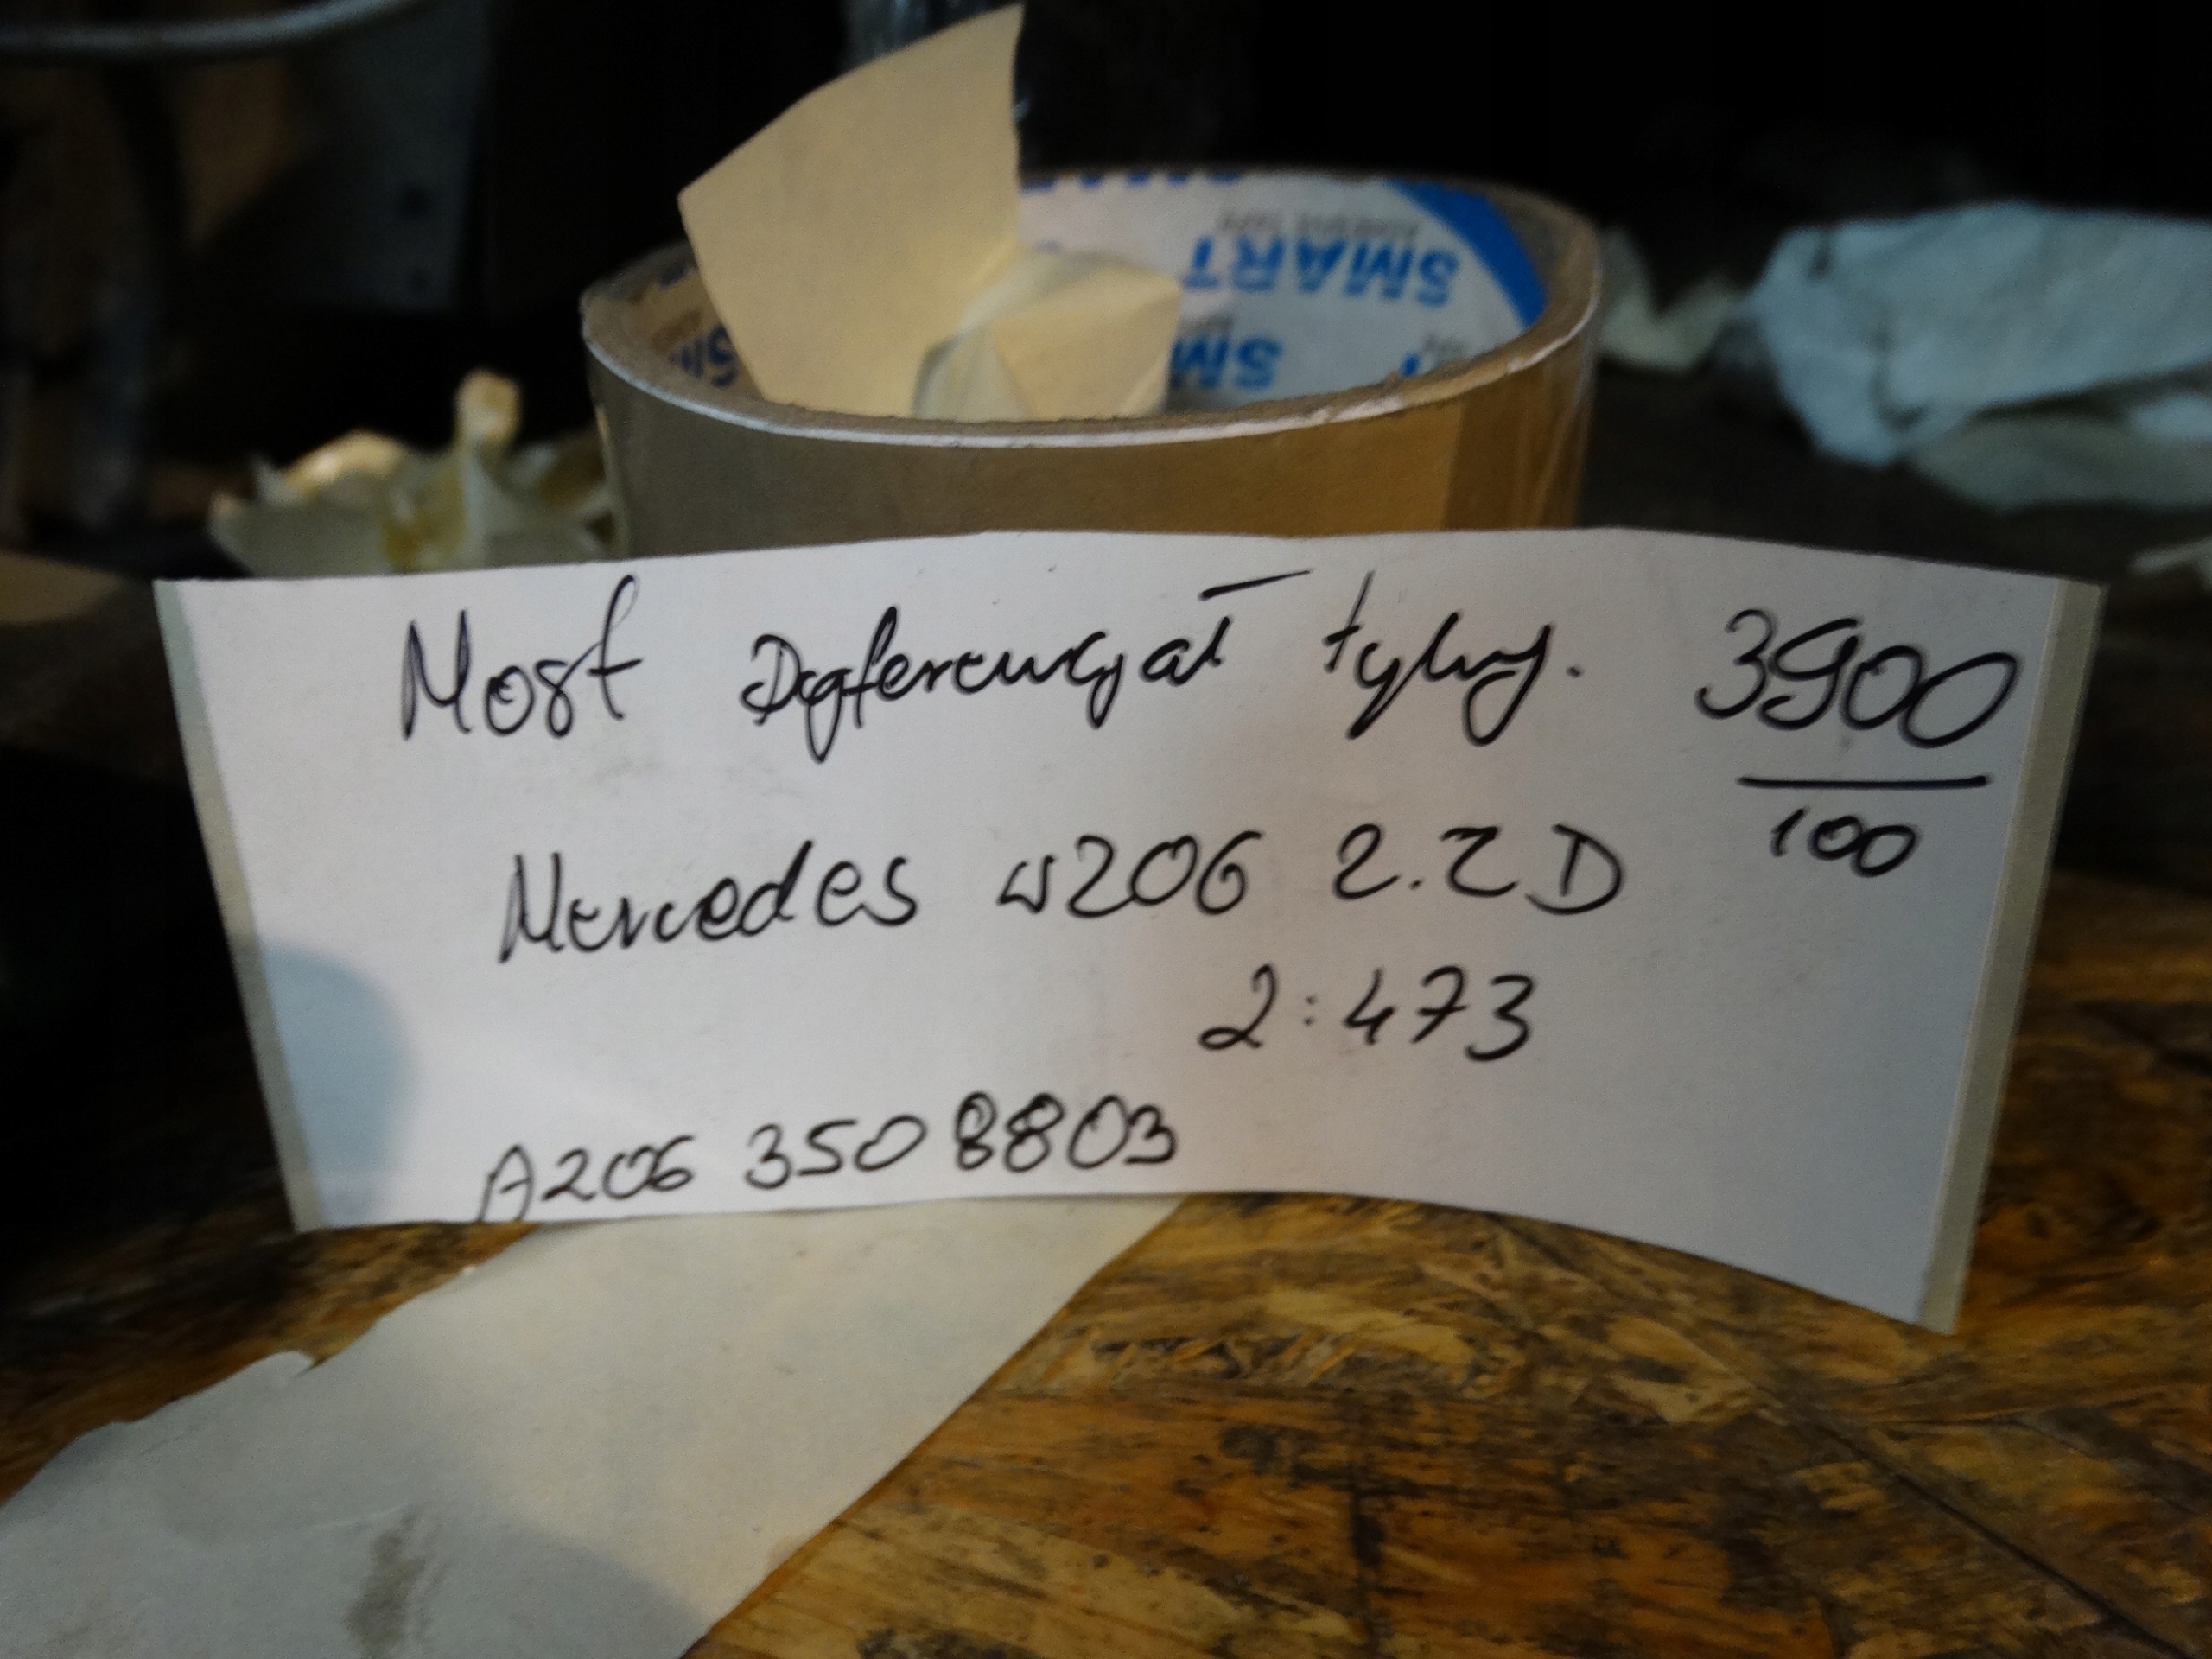 SMART
ADHESIVE TAPE
SMART
SM
Most Dyferencyał tylny. 3900
100
Mercedes w206 2.2 D
2:473
A206 350 8803